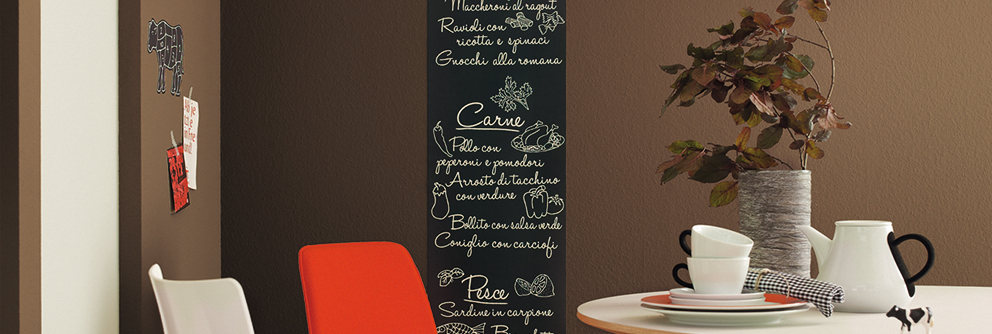 Maccheroni al ragout
Ravioli con
ricotta e spinaci
Gnocchi alla romana
Carne
Pollo con
peperoni e pomodori
Arrosto di tacchino
con verdure
Bollito con salsa verde
Coniglio con carciofi
Pesce
Sardine in carpione